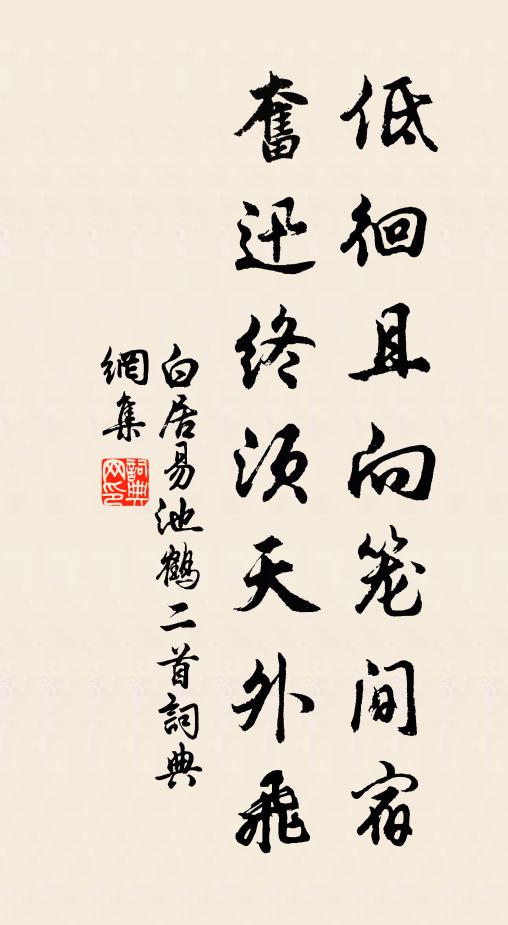 低徊且向笼间宿
奮迅终须天外飛
白居易池鶴二首詞典
網集
詞典
网印